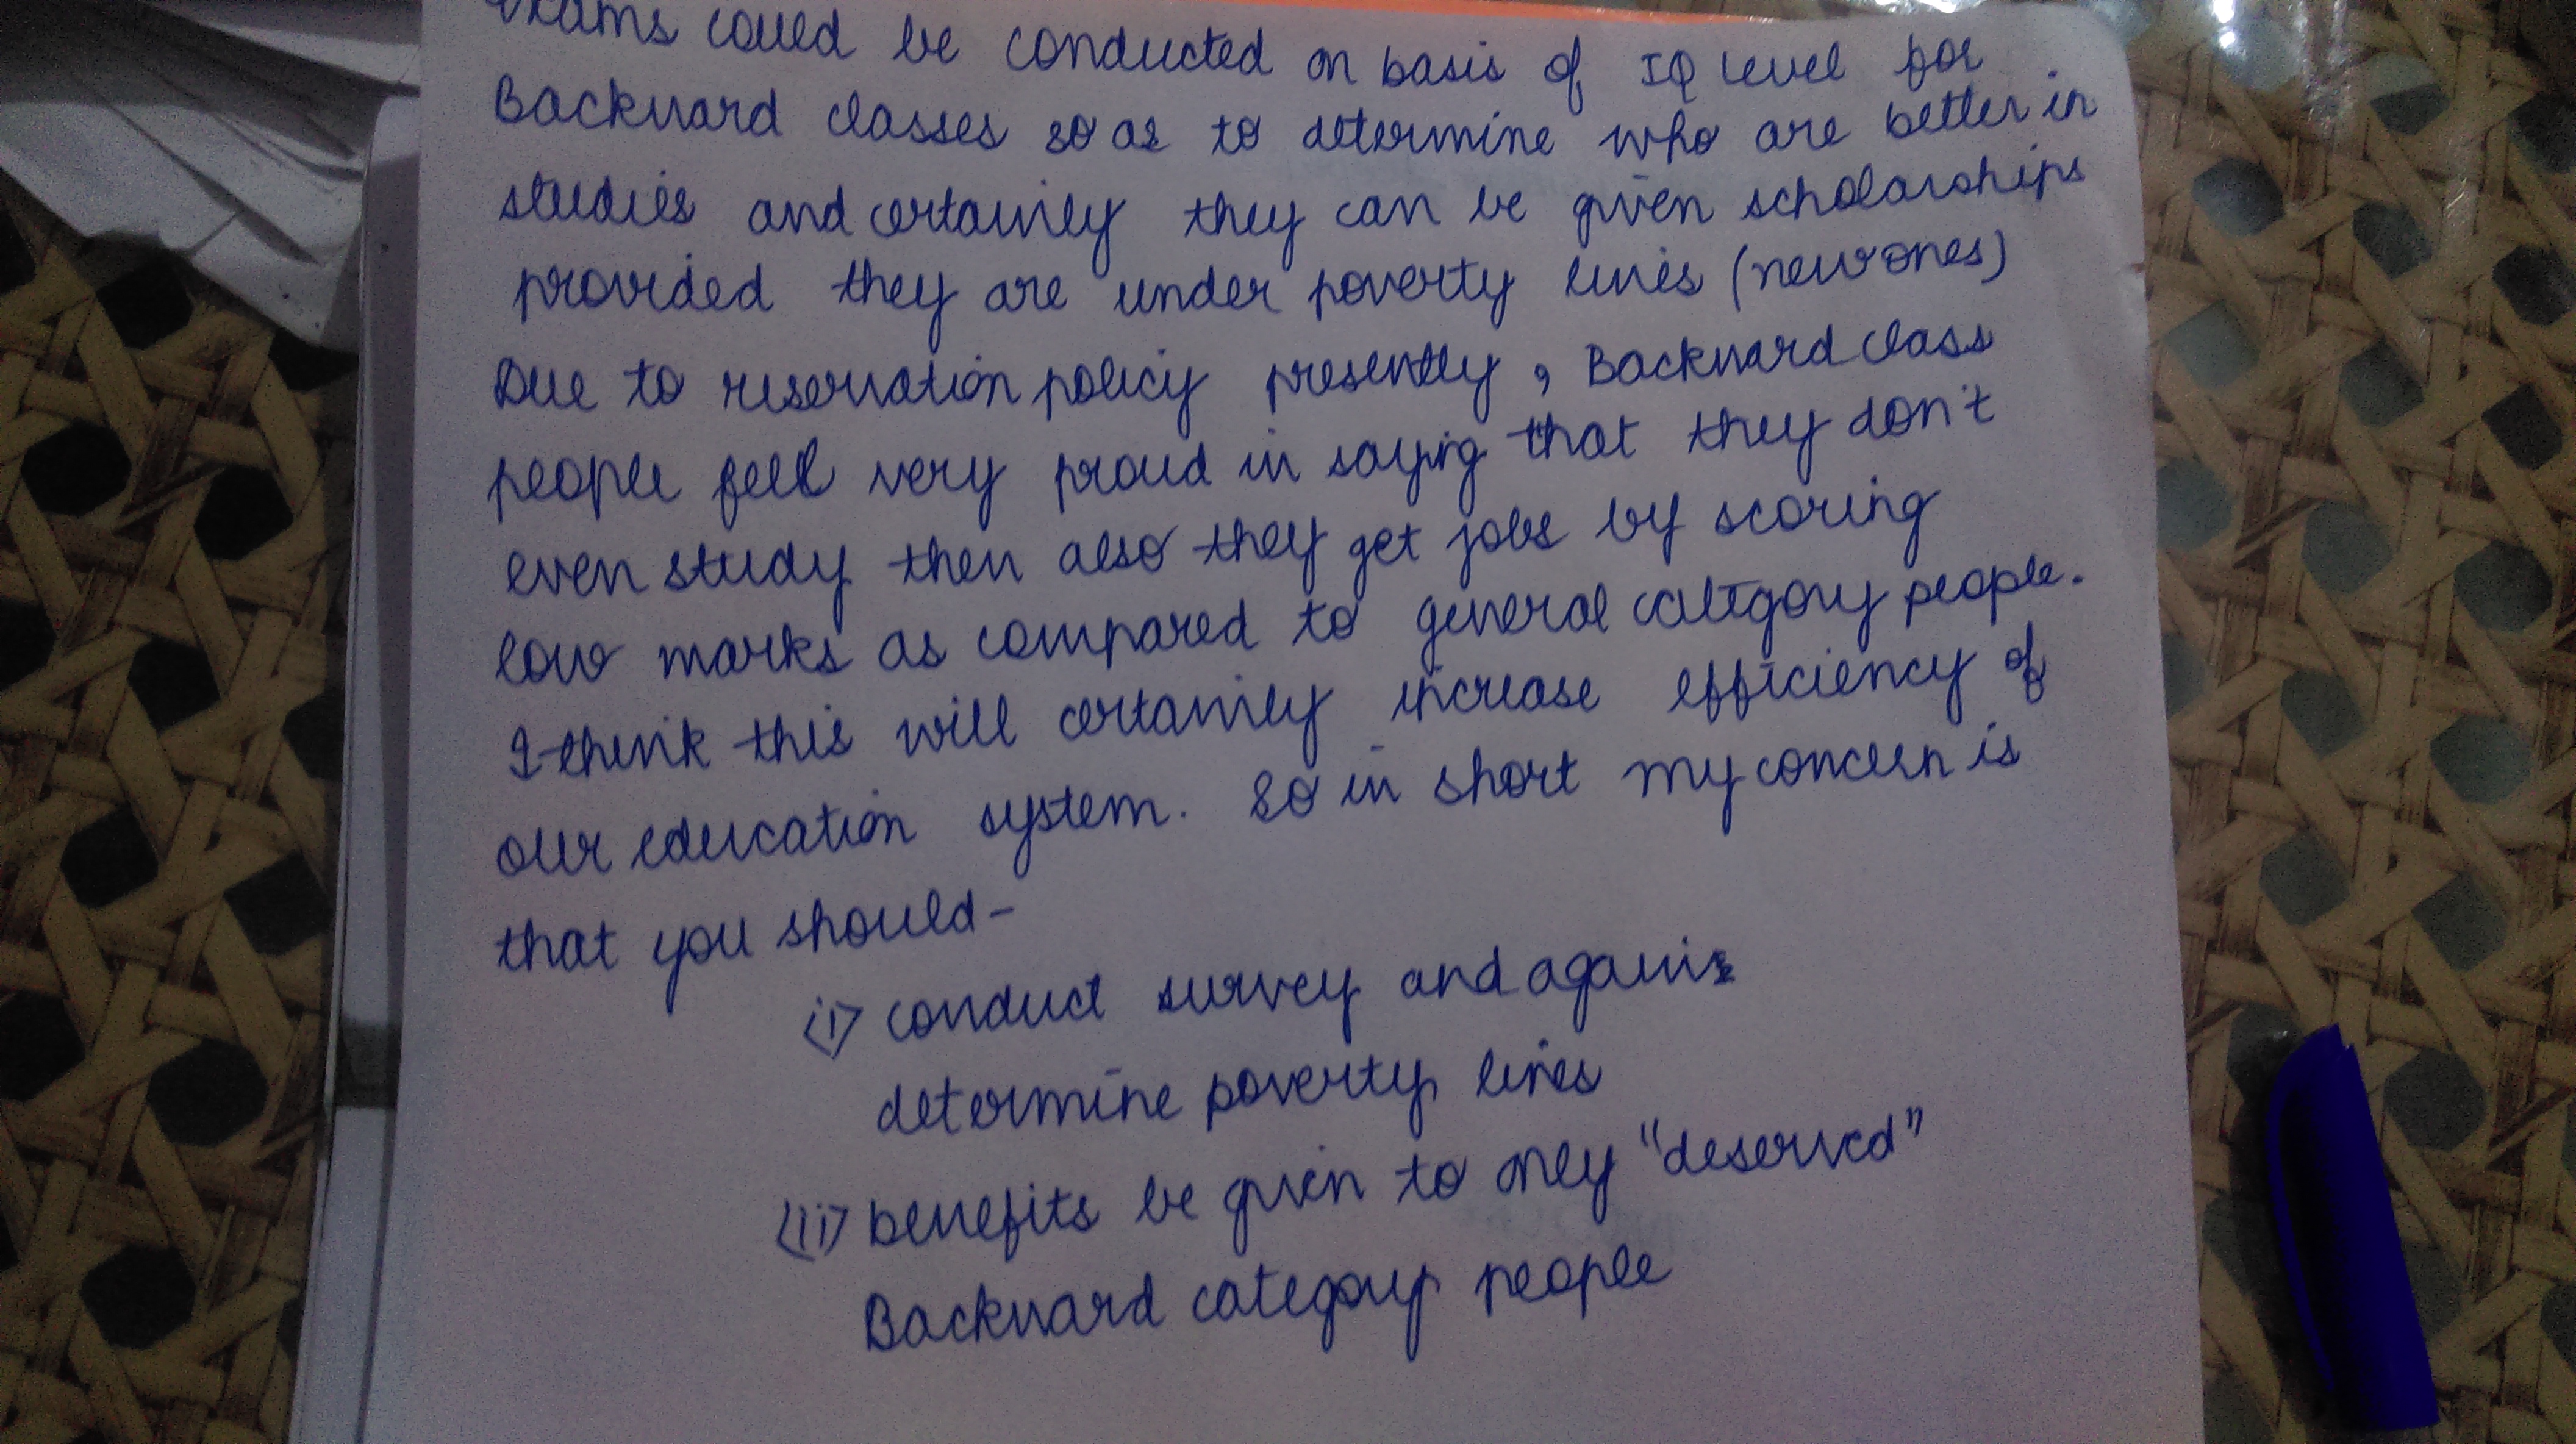 exams could be conducted on basis of IQ level for
Backward classes so as to determine who are better in
studies and certainly they can be given scholarships
provided they are under poverty lines (new ones)
Due to reservation policy presently, Backward class
people feel very proud in saying that they don't
even study then also they get jobs by scoring
low marks as compared to general category people.
I think this will certainly increase efficiency of
our education system. So in short my concern is
that you should-
(i) conduct survey and again
determine poverty lines
(ii) benefits be given to only "deserved"
Backward category people